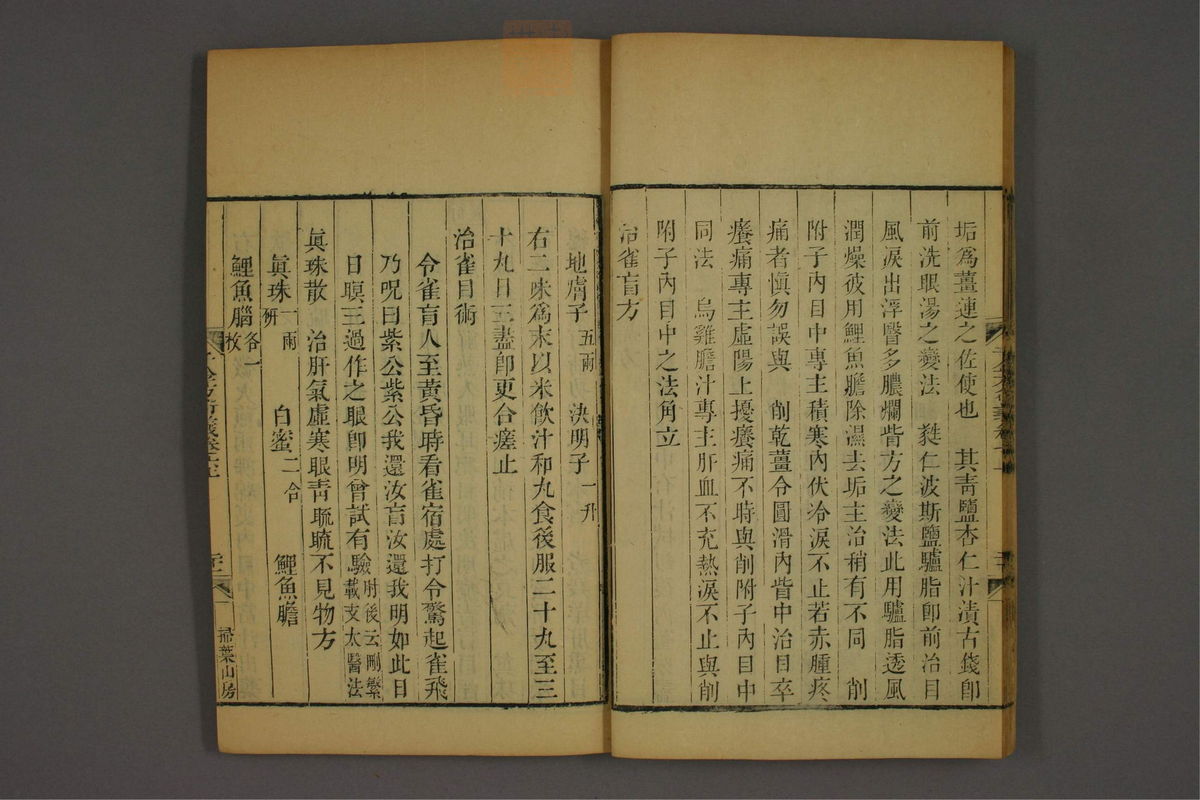 垢爲薑連之佐使也　其靑鹽杏仁汁漬古錢卽
前洗眼湯之變法　蕤仁波斯鹽驢脂卽前治目
風淚出浮瞖多膿爛眥方之變法此用驢脂透風
潤燥彼用鯉魚膽除濕去垢主治稍有不同　削
附子內目中專主積寒內伏冷淚不止若赤腫疼
痛者愼勿誤與　削乾薑令圓滑內眥中治目卒
癢痛專主虛陽上擾癢痛不時與削附子內目中
同法　烏雞膽汁專主肝血不充熱淚不止與削
附子內目中之法角立
治雀盲方
地膚子五兩　決明子一升
右二味爲末以米飮汁和丸食後服二十九至三
十丸日三盡卽更合瘥止
治雀目術
令雀盲人至黃昏時看雀宿處打令驚起雀飛
乃呪曰紫公紫公我還汝盲汝還我明如此日
日暝三過作之眼卽明曾試有驗肘後云刪繁載支太醫法
眞珠散　治肝氣虛寒眼靑䀮䀮不見物方
眞珠一兩硏　白蜜二合　鯉魚膽
鯉魚腦各一枚
千金方衍義卷六上
掃葉山房